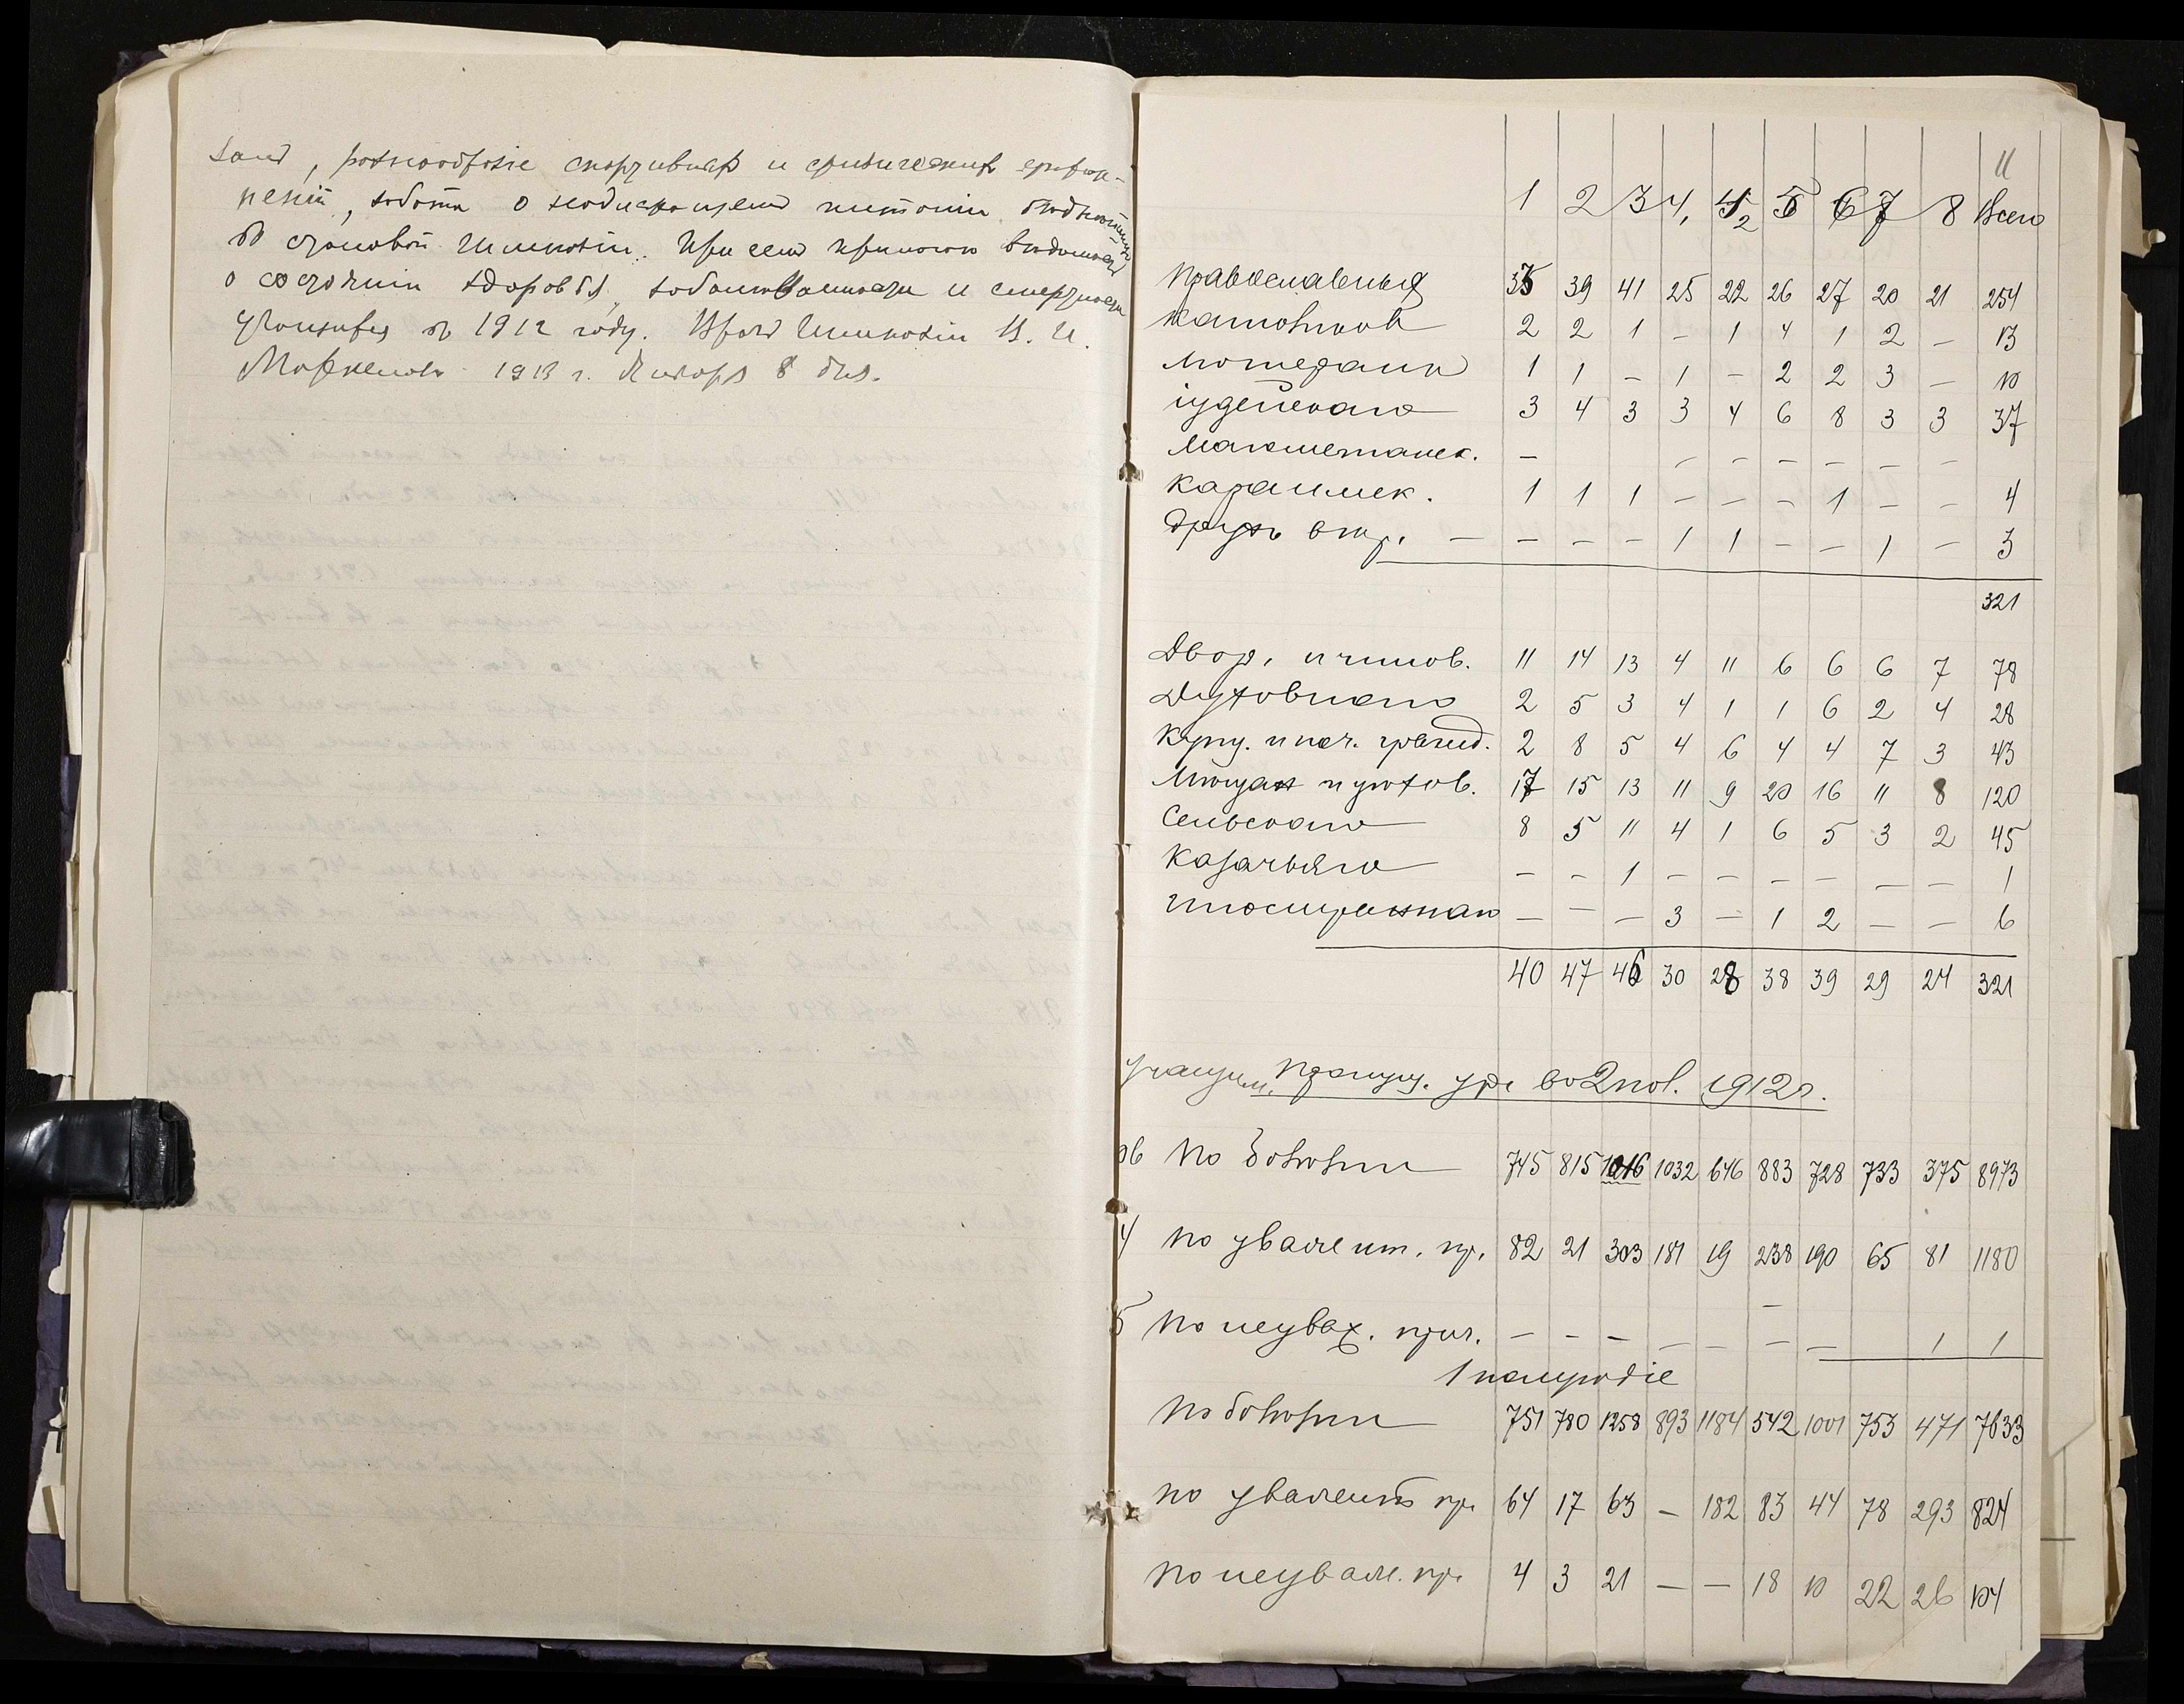 разнообразіе спортивныхъ и физическихъ упраж-
неній, забота о надлежащемъ питаніи
въ столовой Гимназіи. При семъ прилагаю вѣдомость
о состояніи здоровья, заболѣваемости и смертности
учениковъ въ 1912 году. Врачъ Гимназіи В. И.
1913 г. Января 8 дня.
11
1 2 3 4, 4, 2 5 6 7 8 Всего
Православныхъ 35 39 41 25 22 26 27 20 21 254
Католиковъ 2 2 1 – 1 4 1 2 – 13
Лютеранъ 1 1 – 1 – 2 2 3 – 10
іудейскаго 3 4 3 3 4 6 8 3 3 37
Магометанск. – – – – – – –
Караимск. 1 1 1 – – – 1 – – 4
Другихъ вѣр. – – – – 1 1 – – 1 – 3
321
Двор. и чинов. 11 14 13 4 11 6 6 6 7 78
Духовнаго 2 5 3 4 1 1 6 2 4 28
Куп. и поч. гражд. 2 8 5 4 6 4 4 7 3 43
Мѣщан и цехов. 17 15 13 11 9 20 16 11 8 120
Сельскаго 8 5 11 4 1 6 5 3 2 45
Казачьяго – – 1 – – – – – – 1
иностраннаго – – – 3 – 1 2 – – 6
40 47 46 30 28 38 39 29 24 321
Учащим. пропущ. ур. во 2 пол. 1912 г.
ов По болѣзни 745 815 1016 1032 646 883 728 733 375 8973
4 по уважит. пр. 82 21 303 181 19 238 190 65 81 1180
5 По неуваж. прич. – – – – – – – 1 1
1 полугодіе
По болѣзни 751 780 1258 893 1184 542 1001 753 471 7633
по уважит. пр. 64 17 63 – 182 83 44 78 293 824
по неуваж. пр. 4 3 21 – – 18 10 22 26 104